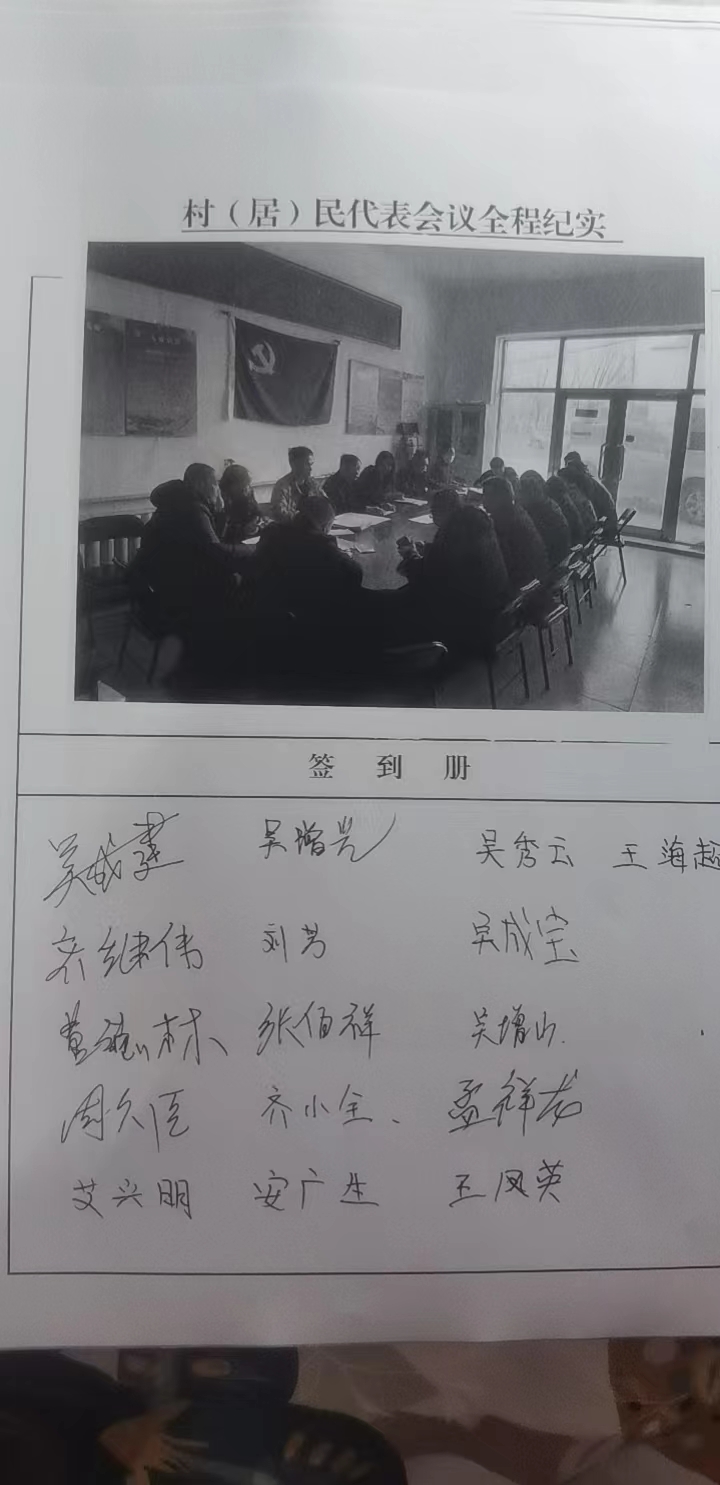 村（居）民代表会议全程纪实
签 到 册
吴成建 吴增光 吴秀云 王海超
齐继伟 刘芳 吴成宝
董德林 张伯祥 吴增山
周久臣 齐小全 孟祥龙
艾兴明 安广生 王凤英